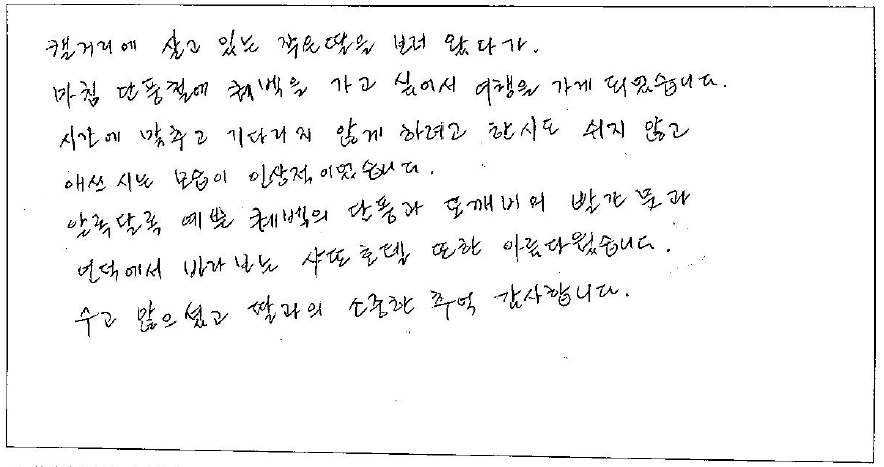 캘거리에 살고 있는 작은딸을 보러 왔다가.
마침 단풍철에 퀘벡을 가고 싶어서 여행을 가게 되었습니다.
시간에 맞추고 기다리지 않게 하려고 한시도 쉬지 않고
애쓰시는 모습이 인상적이었습니다.
알록달록 예쁜 퀘벡의 단풍과 도깨비의 빨간 문과
언덕에서 바라보는 샤또호텔 또한 아름다웠습니다.
수고 많으셨고 딸과의 소중한 추억 감사합니다.